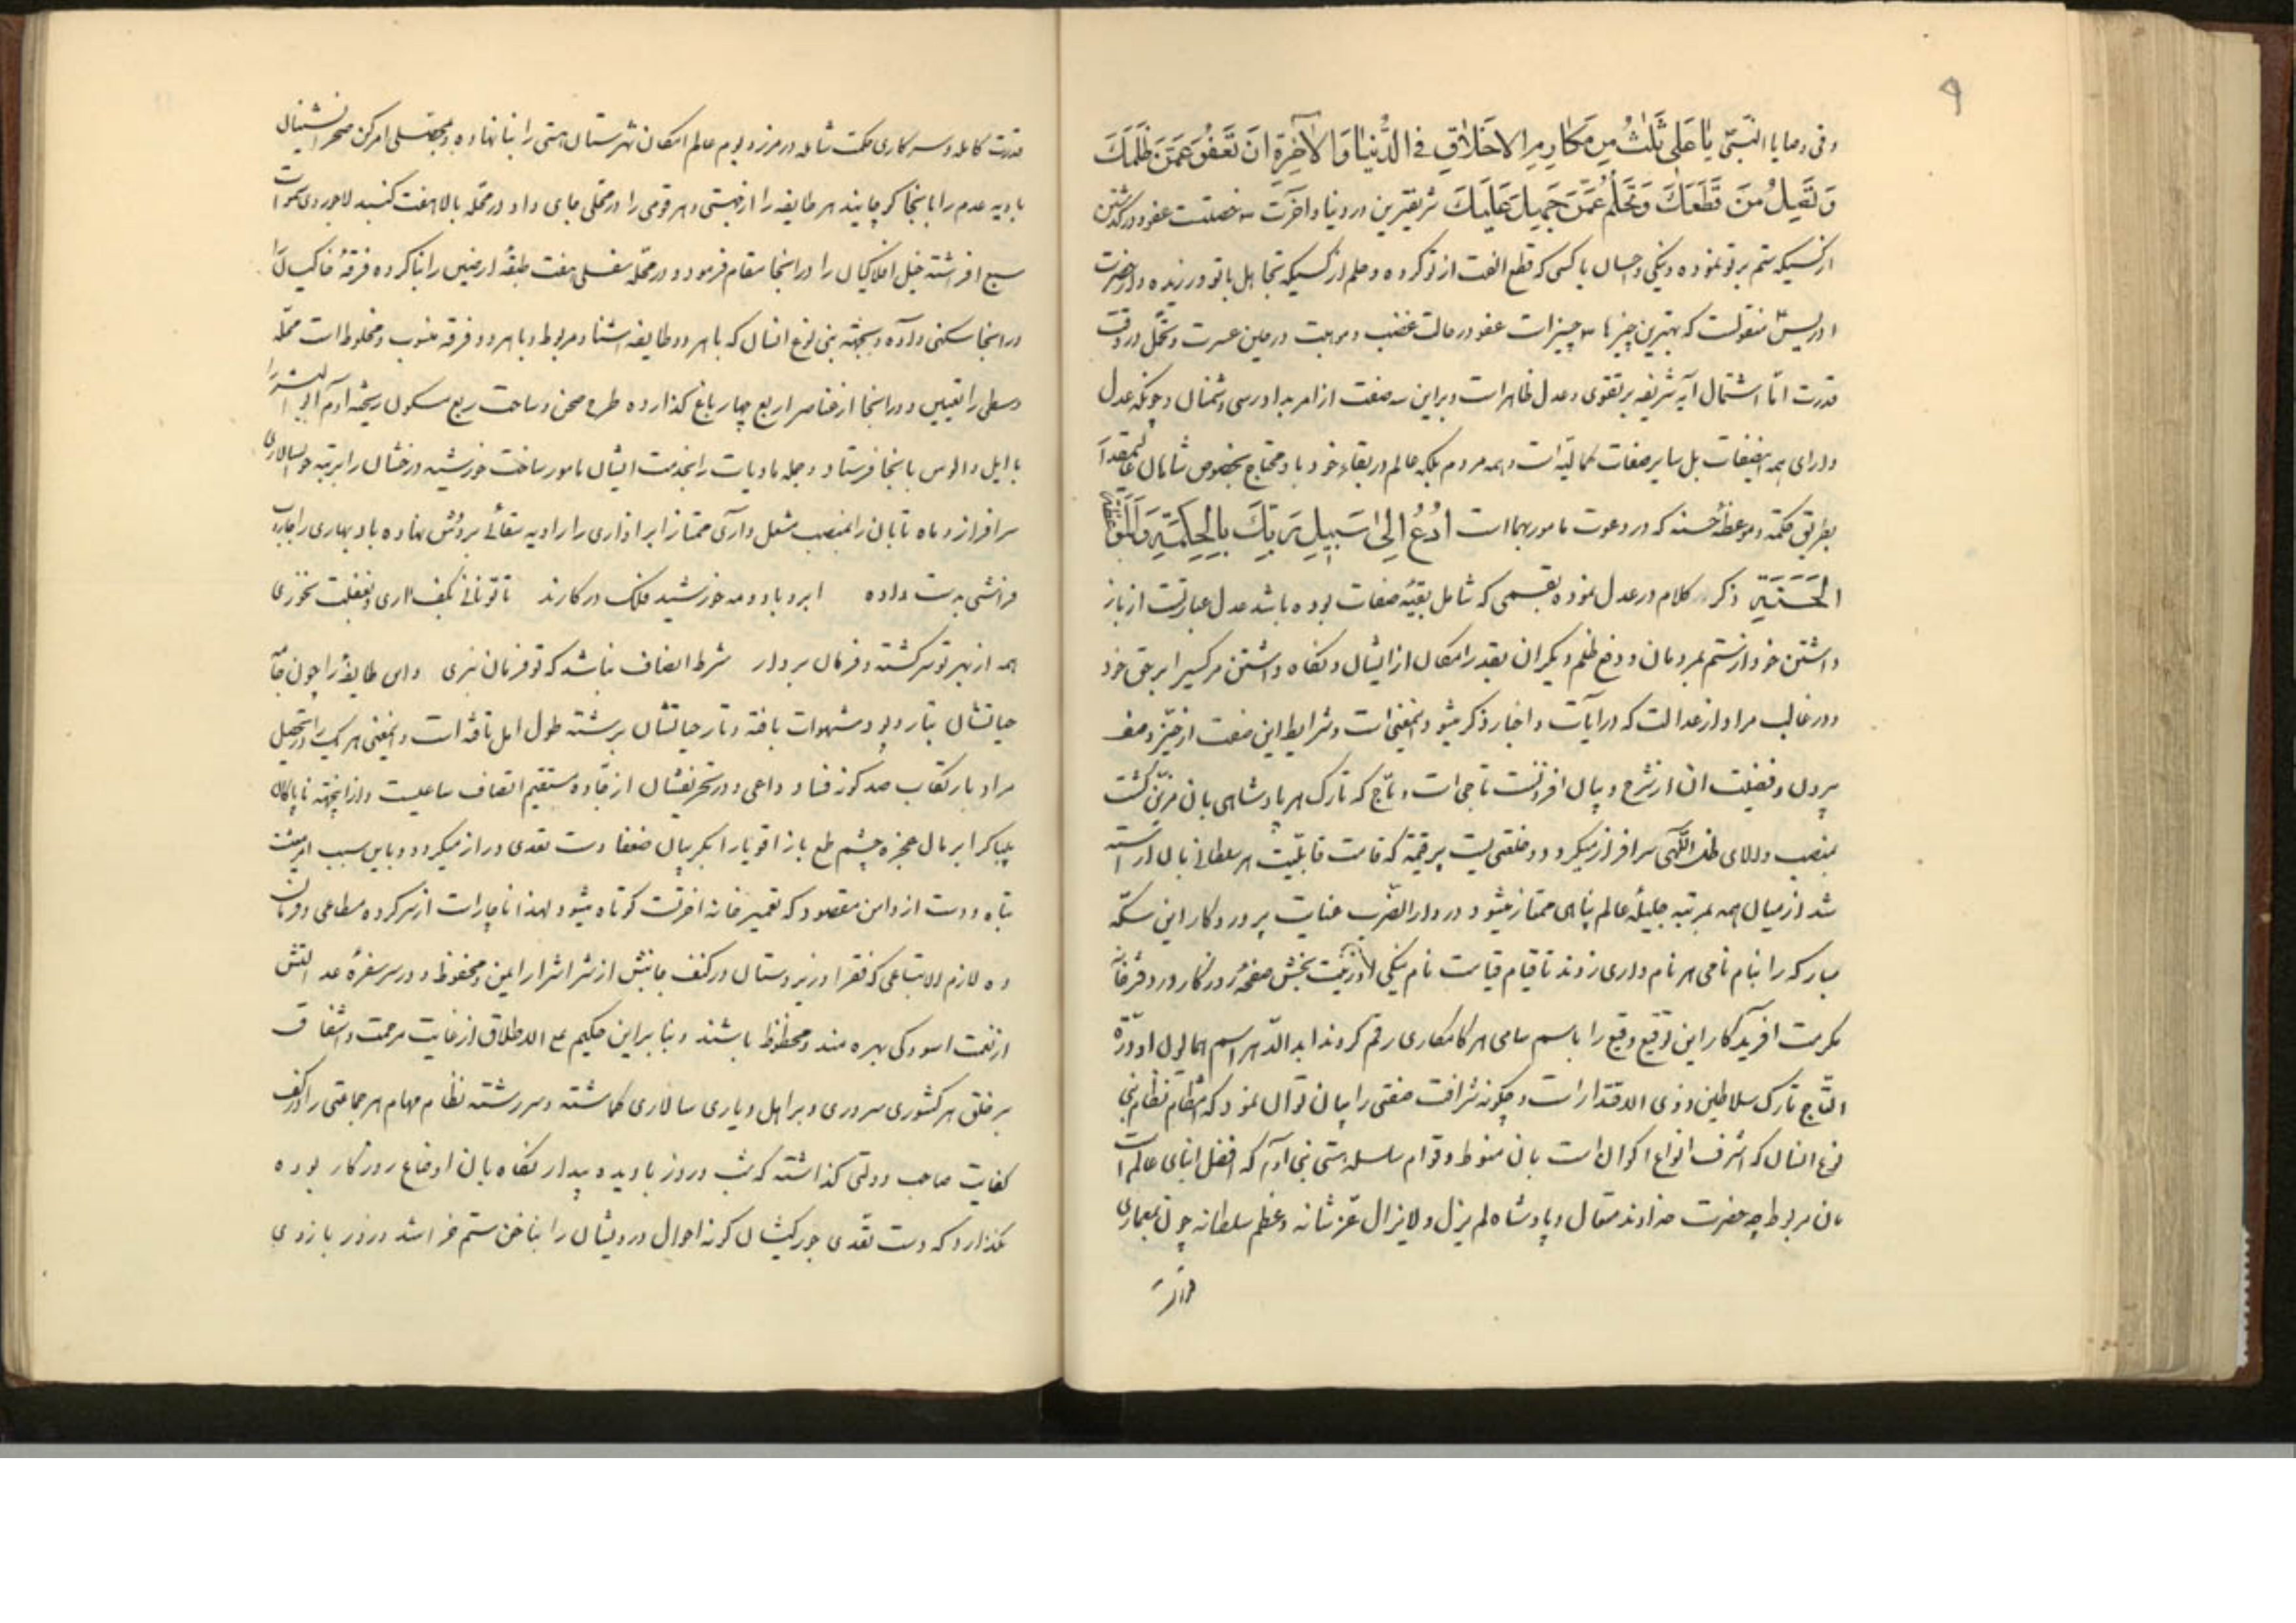 ۹
و فی وصایا النبیّ یٰا عَلی ثَلٰثٌ مِن مَکٰارِمِ الاَخَلٰاقِ فِی الدُّنیٰا وَ الاٰخِرَةِ اَنَ تَعَفُوَ عَمَّنَ ظَلَمَكَ
وَ تَصِلُ مَنَ قَطَعَكَ وَ تَحَلُمُ عَمَّنَ جَهِلَ عَلَیَكَ شریفترین در دنیا و آخرت سه خصلتست عفو و درگذشتن
از کسیکه ستم بر تو نموده و نیکی و احسان با کسی که قطع الفت از تو کرده و حلم از کسیکه تجاهل با تو ورزیده و از حضرت
ادریس منقولست که بهترین چیزها سه چیز است عفو در حالت غضب و موهبت در حین عسرت و تحمّل در وقت
قدرت امّا اشتمال آیه شریفه بر تقوی و عدل ظاهر است و براین سه صفت از امر بدادرسی دشمنان و چونکه عدل
دارای همه اینصفات بل سایر صفات کمالیّه است و همه مردم بلکه عالم در بقاء خود باو محتاج بخصوص شاهان عالیمقدار
بطریق حکمة و موعظهٔ حسنه که در دعوت مامور بهما است اُدُعُ اِلیٰ سَبیلِ رَبِّكَ بِالِحِکمَةِ وَ المَوَعِظَةِ
الحَسَنَةِ ذکر کلام در عدل نموده بقسمی که شامل بقیّه صفات بوده باشد عدل عبارتست از باز
داشتن خود از ستم بمردمان و دفع ظلم دیگران بقدر امکان از ایشان و نگاه داشتن هرکسی را بر حق خود
و در غالب مراد از عدالت که در آیات و اخبار ذکر میشود اینمعنی است و شرایط این صفت از حیّز وصف
بیرون و فضیلت ان از شرح و بیان افزونست تاجی است وهّاج که تارک هر پادشاهی بان مزیّن گشت
بمنصب والای ظل اللّهی سرافراز میگردد و خلعتی است پر قیمة که قامت قابلیّت هر سلطانی بان آراسته
شد از میان همه بمرتبه جلیلهٔ عالم پناهی ممتاز میشود در دار الضّرب عنایت پروردگار این سکّه
مبارکه را بنام نامی هر نام داری زدند تا قیام قیامت نام نیکی او زینت بخش صفحهٔ روزگار و در دفترخانه
مکرمت افریدگار این توقیع وقیع را باسم سامی هر کامکاری رقم کردند ابد الدّهر اسم همایون او درّة
التّاج تارک سلاطین ذوی الاقتدار است و چگونه شرافت صفتی را بیان توان نمود که انتظام نظام بنی
نوع انسان که اشرف انواع اکوان است بان منوط و قوام سلسله هستی بنی آدم که افضل ابنای عالم است
بان مربوط چه حضرت خداوند متعال و پادشاه لم یزل و لایزال عزّ شانه و عظم سلطانه چون بمعماری
قدرت
قدرت کامله و سرکاری حکمت شامله در مرز و بوم عالم امکان شهرستان هستی را بنا نهاده و بمقتضای امر کن صحرا نشینان
بادیه عدم را بانجا کوچانید هر طایفه را از هستی و هر قومی را در محلی جای داد در محله بالا هفت گنبد لاجوردی سموات
سبع افراشته خیل افلاکیان را در انجا مقام فرمود و در محلّه سفلی هفت طبقهٔ ارضین را بنا کرده فرقهٔ خاکیان را
در انجا سکنی داده و بجهته بنی نوع انسان که با هر دو طایفه اشنا و مربوط و با هر دو فرقه منسوب و مخلوط است محلّه
وسطی را تعیین و در انجا از عناصر اربع چهار باغ گذارده طرح صحن و ساحت ربع مسکون ریخته آدم ابو البشر را
با ایل و الوس بانجا فرستاد و جمله مادیات را بخدمت ایشان مامور ساخت خورشید درخشان را برتبه خوانسالاری
سرافراز و ماه تابان را بمنصب مشعل داری ممتاز ابر اذاری را راویه سقائی بر دوش نهاده باد بهاری را جاروب
فراشی بدست داده ابر و باد و مه خورشید فلک در کارند تا تو نانی بکف اری و بغفلت نخوری
همه از بهر تو سرگشته و فرمان بردار شرط انصاف نباشد که تو فرمان نبری و این طایفه را چون جامه
حیاتشان بتار و پود شهوات بافته و تار حیاتشان برشته طول امل تافته است و اینمعنی هر یک را در تحصیل
مراد بارتکاب صد گونه فساد داعی و در تحریفشان از جادّه مستقیم انصاف ساعیست و از اینجهته ناپاکان
بیباک را بر مال عجزه چشم طمع باز اقویا را بگریبان ضعفا دست تعدی دراز میگردد و باین سبب امر معیشت
تباه و دست از دامن مقصود که تعمیر خانه اخرتست کوتاه میشود لهذا ناچار است از سرکرده مطاعی و فرمان
ده لازم الاتباعی که فقرا و زیردستان در کنف حمایتش از شر اشرار ایمن و محفوظ و در سر سفرهٔ عدالتش
از نعمت اسودگی بهره مند و محظوظ باشند و بنا براین حکیم علی الاطلاق از غایت مرحمت و اشفاق
بر خلق هر کشوری سروری و بر اهل دیاری سالاری گماشته و سررشته نظام مهام هر جماعتی را در کف
کفایت صاحب دولتی گذاشته که شب و روز با دیده بیدار نگاه بان اوضاع روزگار بوده
نگذارد که دست تعّدی جور کیشان گونه احوال درویشان را بناخن ستم خراشد و زور بازوی